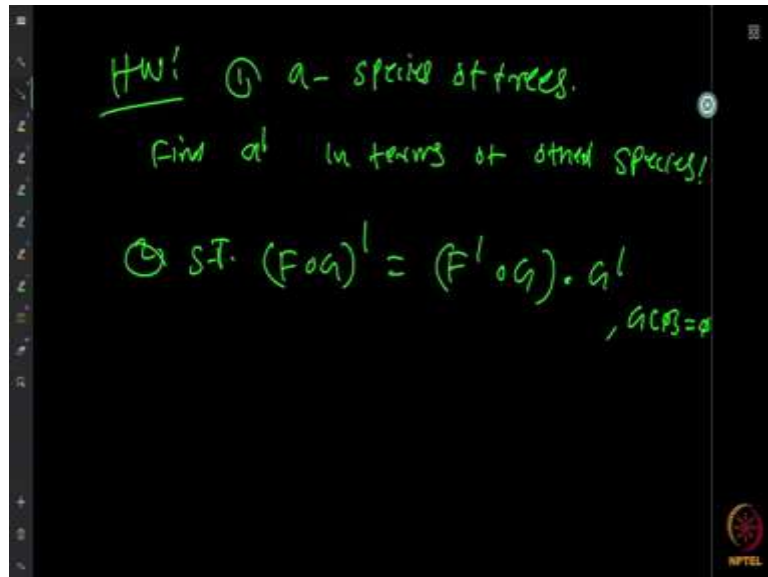 HW! ① a - species of trees.
Find a' in terms of other species!
② S.T. (F∘G)' = (F'∘G). G'
, G[∅]=∅
NPTEL